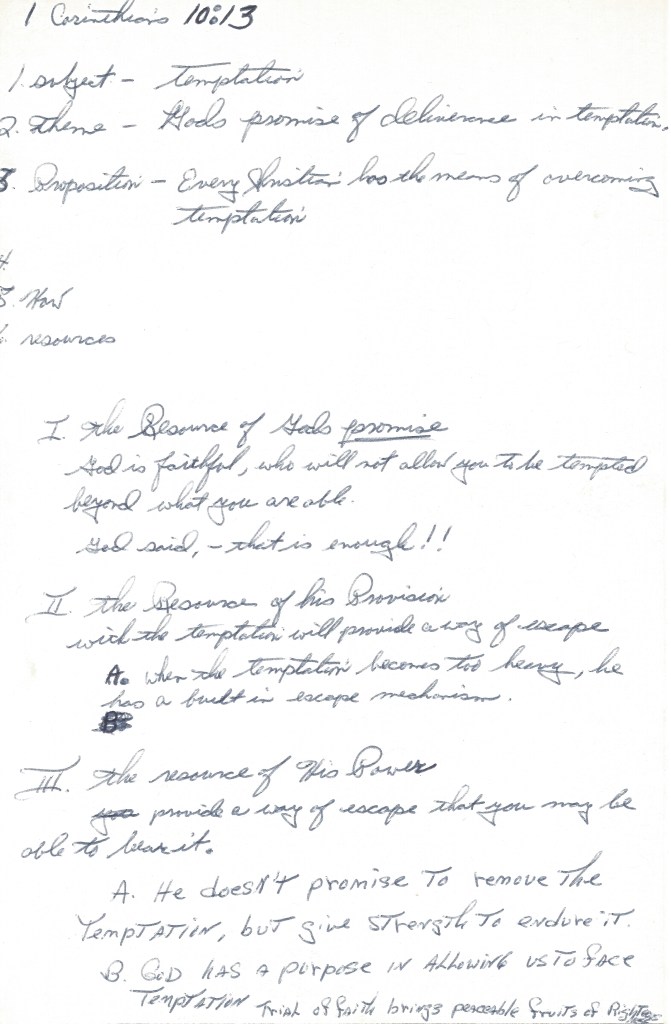 1 Corinthians 10:13
1. subject - temptation
2. Theme - Gods promise of deliverance in temptation.
3. Proposition - Every Christian has the means of overcoming
temptation
4.
5. How
6. resources
I. the Resource of Gods promise
God is faithful, who will not allow you to be tempted
beyond what you are able.
God said, - that is enough!!
II. the Resource of his Provision
with the temptation will provide a way of escape
A. when the temptation becomes too heavy, he
has a built in escape mechanism.
B
III. the resource of His Power
you provide a way of escape that you may be
able to bear it.
A. He doesn't promise to remove the
Temptation, but give strength to endure it.
B. GOD HAS A purpose IN Allowing us to face
Temptation Trial of faith brings peaceable fruits of